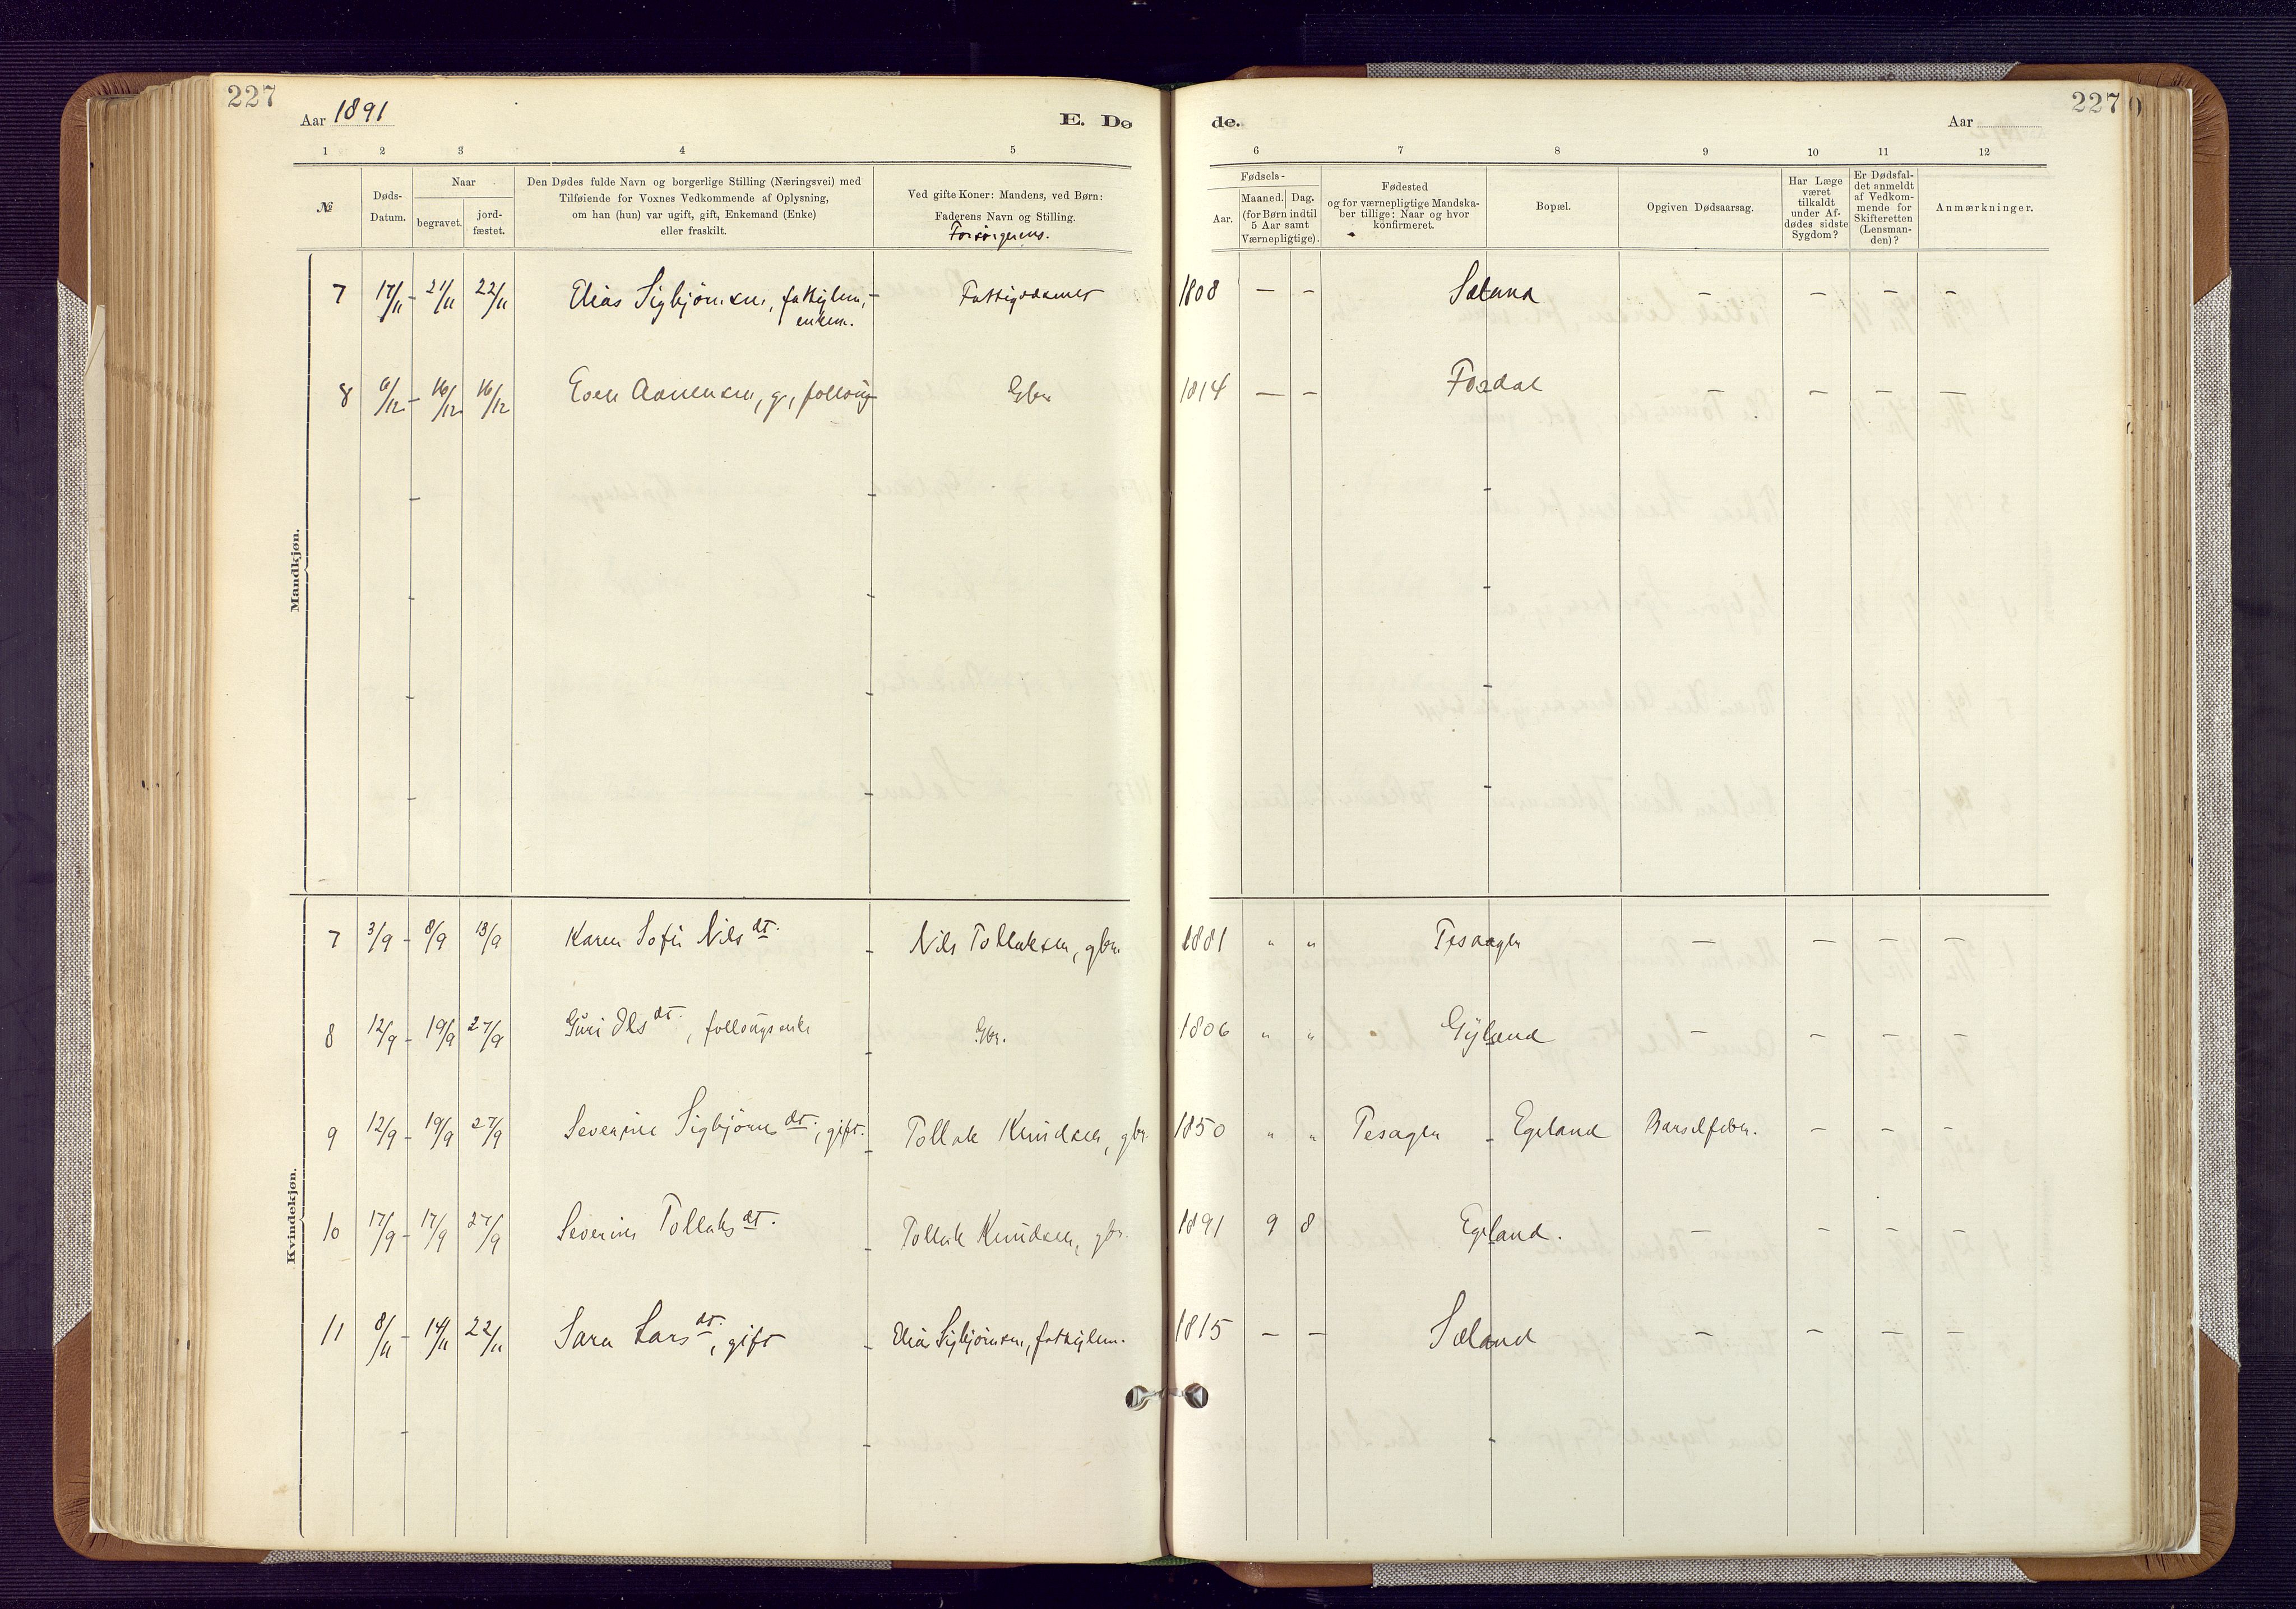 227
Aar 1891
E. Dø
de.
Aar
227
1 2 3 4 5
6 7 8 9 10 11 12
№
Døds-
Datum.
Naar
begravet.
jord-
fæstet.
Den Dødes fulde Navn og borgerlige Stilling (Næringsvei) med
Tilføiende for Voxnes Vedkommende af Oplysning,
om han (hun) var ugift, gift, Enkemand (Enke)
eller fraskilt.
Ved gifte Koner: Mandens, ved Børn:
Faderens Navn og Stilling.
Forsörgerens.
Fødsels-
Aar.
Maaned. Dag.
(for Børn indtil
5 Aar samt
Værnepligtige).
Fødested
og for værnepligtige Mandska-
ber tillige: Naar og hvor
konfirmeret.
Bopæl.
Opgiven Dødsaarsag.
Har Læge
været
tilkaldt
under Af-
dødes sidste
Sygdom?
Er Dødsfal-
det anmeldt
af Vedkom-
mende for
Skifteretten
(Lensman-
den)?
Anmærkninger.
Mandkjøn.
7 17/11 - 21/11 22/11 Elias Sigbjörnsen, fattiglem, - Fattigvæsenet 1808 — — Sæland — — — —
enkem.
8 6/12 - 16/12 16/12 Even Aanensen, g., follaug - Gbr. 1814 — — Fordal — — — —
Kvindekjøn.
7 3/9 - 8/9 13/9 Karen Sofie Nilsdt. - Nils Tollaksen, gbr. 1881 " " Pesagen — — — —
8 12/9 - 19/9 27/9 Guri Olsdt., follaugsenke - Gbr. 1806 " " Gyland — — — —
9 12/9 - 19/9 27/9 Severine Sigbjörnsdt., gift. - Tollak Knudsen, gbr. 1850 " " Pesagen - Egeland Barselfeber. — — —
10 17/9 17/9 27/9 Severine Tollaksdt. - Tollak Knudsen, gbr. 1891 9 8 Egeland. — — — —
11 8/11 - 14/11 22/11 Sara Larsdt., gift - Elias Sigbjörnsen, fattiglem. 1815 — — Sæland — — — —